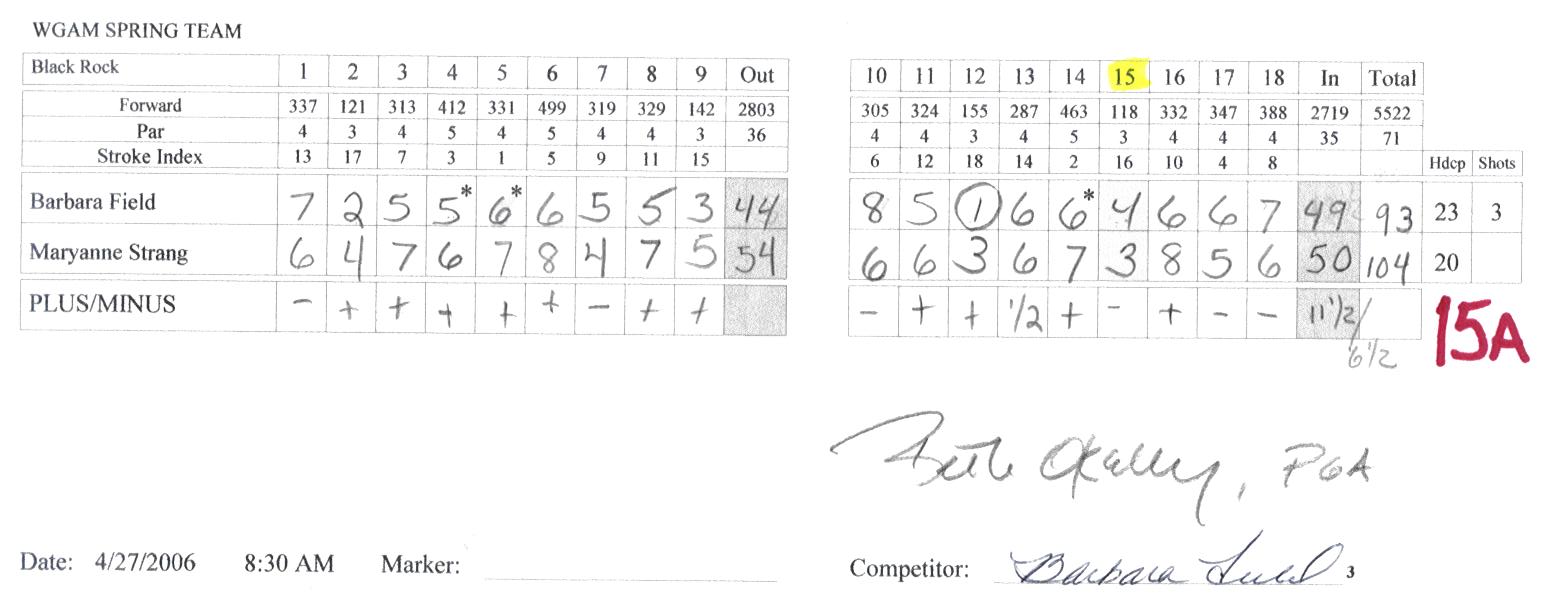 WGAM SPRING TEAM
Black Rock 1 2 3 4 5 6 7 8 9 Out 10 11 12 13 14 15 16 17 18 In Total
Forward 337 121 313 412 331 499 319 329 142 2803 305 324 155 287 463 118 332 347 388 2719 5522
Par 4 3 4 5 4 5 4 4 3 36 4 4 3 4 5 3 4 4 4 35 71
Stroke Index 13 17 7 3 1 5 9 11 15 6 12 18 14 2 16 10 4 8 Hdcp Shots
Barbara Field 7 2 5 5* 6* 6 5 5 3 44 8 5 1 6 6* 4 6 6 7 49 93 23 3
Maryanne Strang 6 4 7 6 7 8 4 7 5 54 6 6 3 6 7 3 8 5 6 50 104 20
PLUS/MINUS - + + + + + - + + - + + 1/2 + - + - - 11 1/2/
6 1/2
15A
Beth Okelly, PGA
Date: 4/27/2006 8:30 AM Marker: Competitor: Barbara Field 3